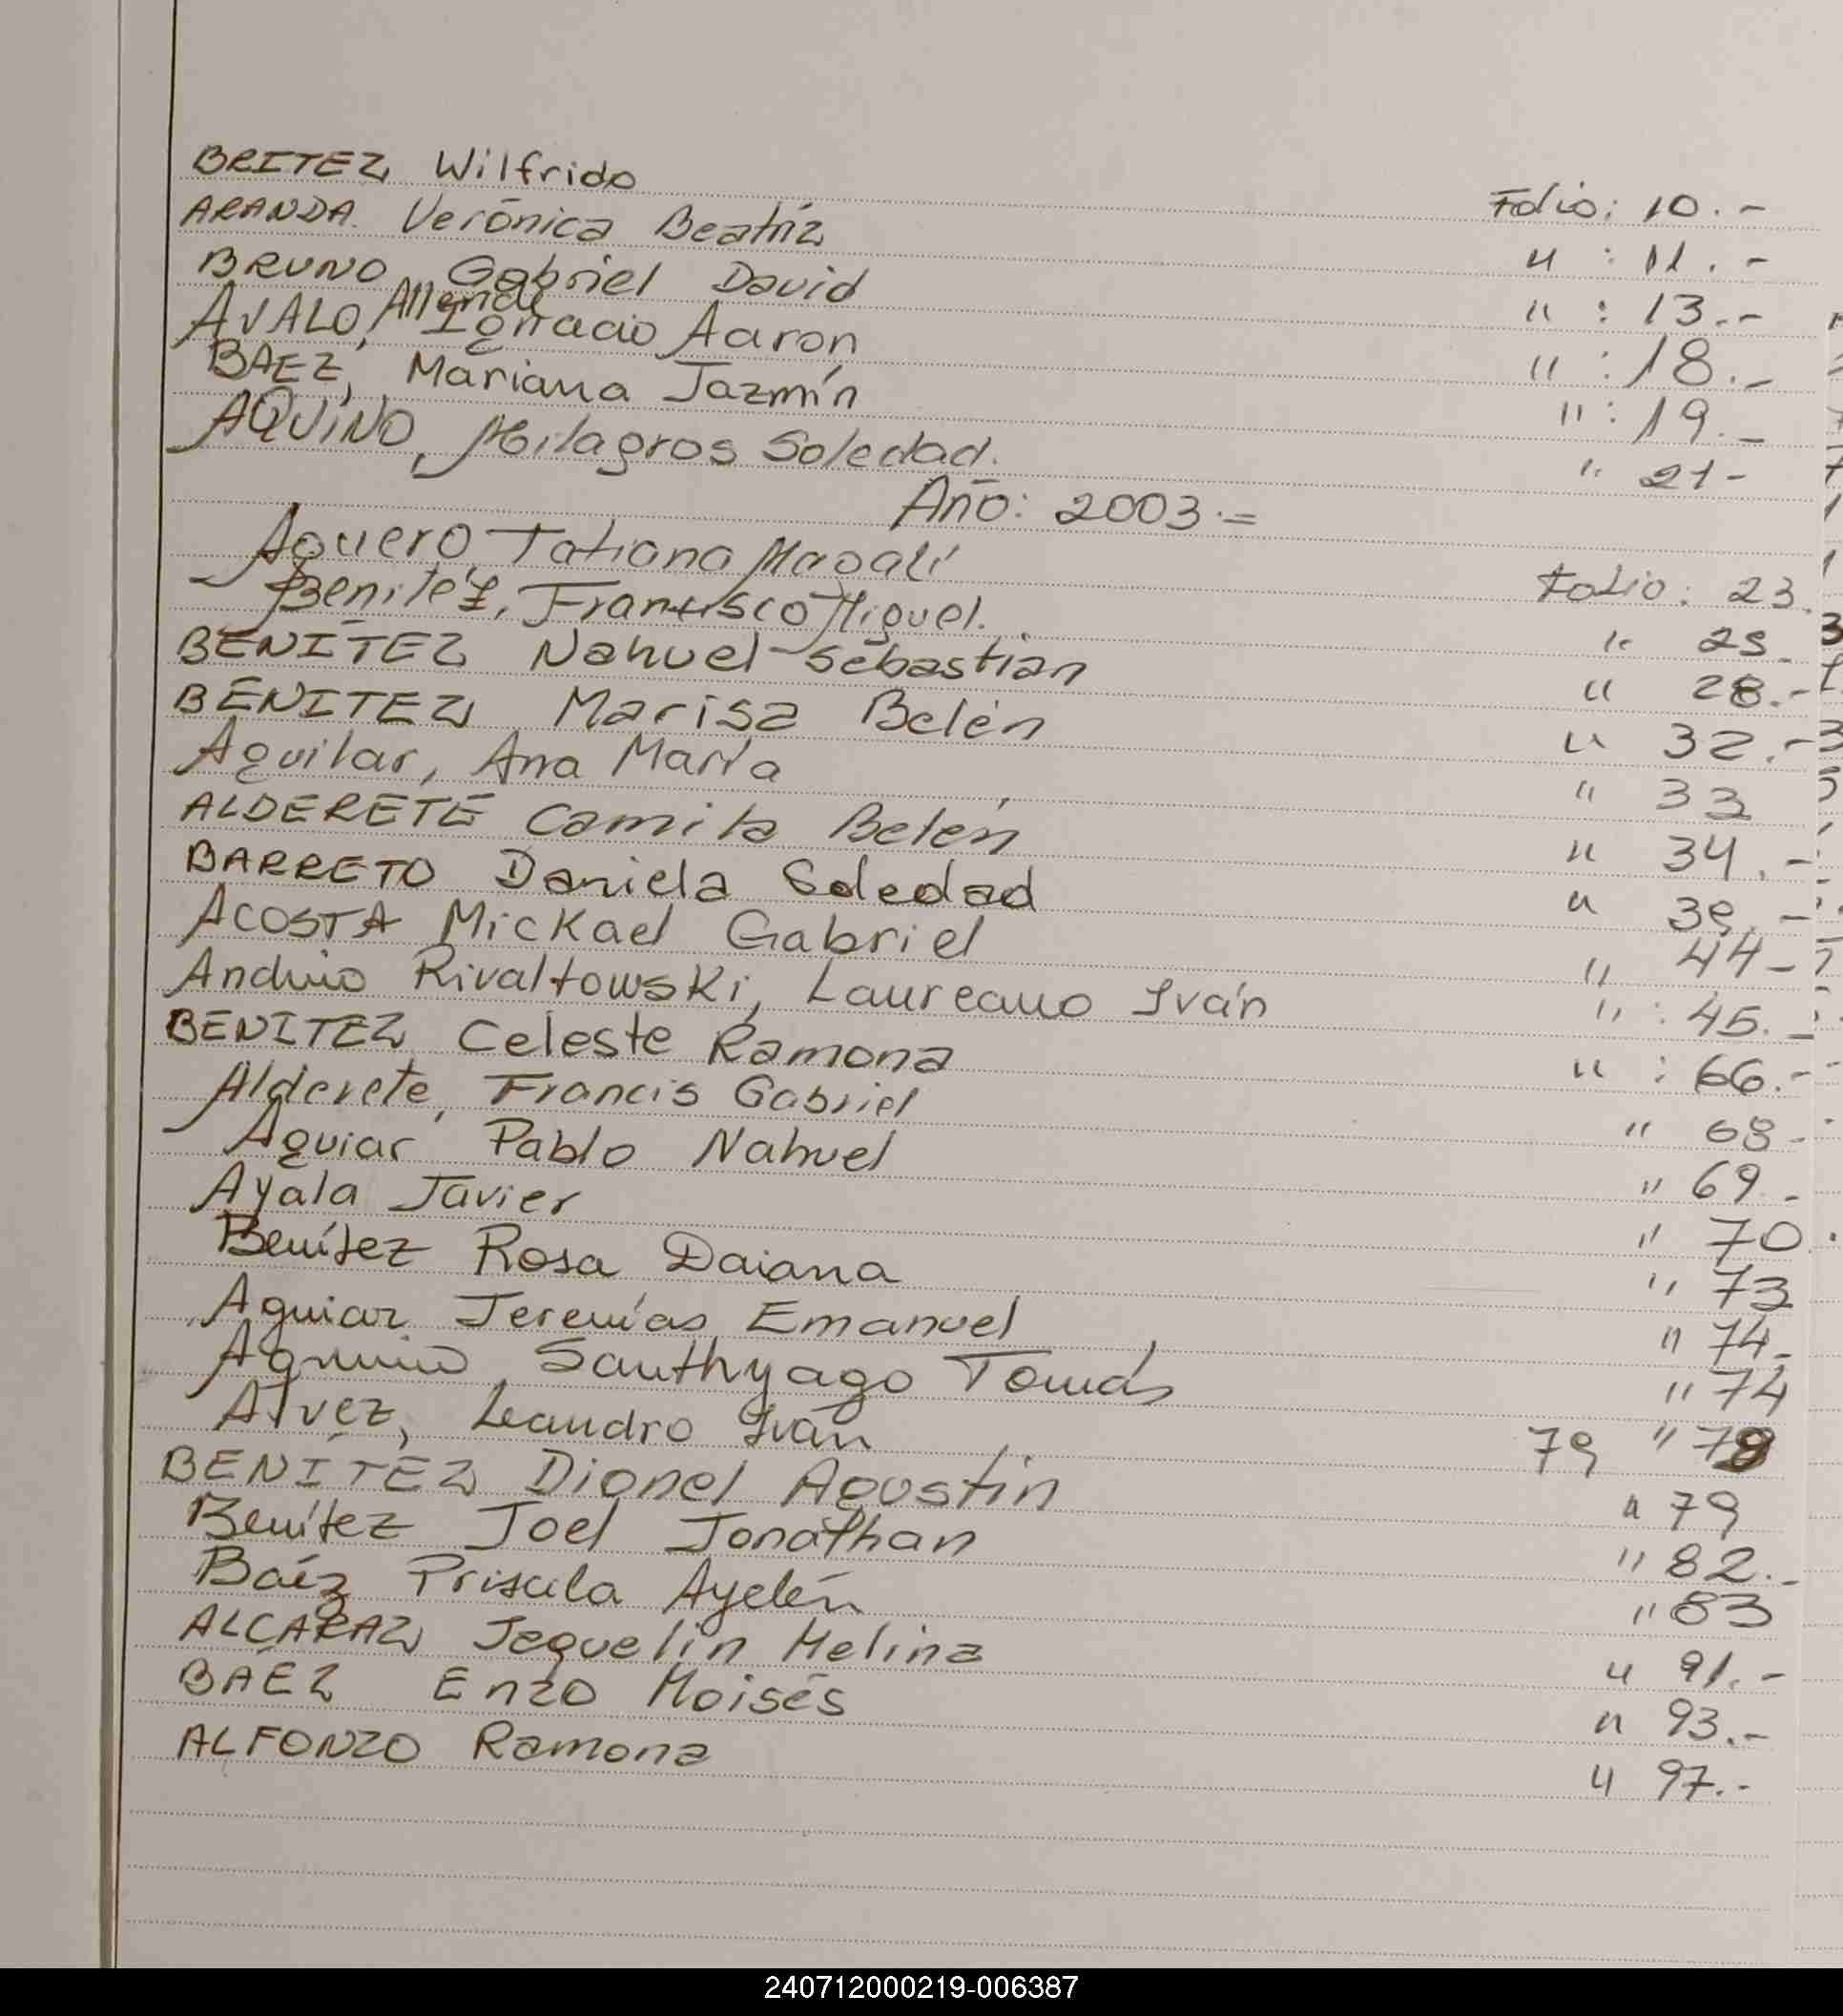 BRITEZ Wilfrido Folio: 10.-
ARANDA. Verónica Beatríz " : 11.-
BRUNO Gabriel David " : 13.-
AVALO, Allende Ignacio Aaron " : 18.-
BAEZ, Mariana Jazmín " : 19.-
AQUINO, Milagros Soledad. " 21-
Año: 2003.=
Aguero, Tatiana Magalí Folio: 23.
Benitez, Francisco Miguel. " 25.
BENITEZ Nahuel Sebastián " 28.-
BENITEZ Marisa Belén " 32.-
Aguilar, Ana María " 33
ALDERETE Camila Belén " 34.-
BARRETO Daniela Soledad " 39.-
ACOSTA Mickael Gabriel " 44-
Rivaltowski, Laureano Iván " : 45.-
BENITEZ Celeste Ramona " : 66.-
Alderete, Francis Gabriel " 68-
Aguiar Pablo Nahuel " 69.-
Ayala Javier " 70.
Benítez Rosa Daiana " 73
Aguiar Jeremías Emanuel " 74-
Santhyago Tomás " 74
Alvez, Leandro Iván 79 "
BENÍTEZ Dionel Agustín " 79
Benítez Joel Jonathan " 82.-
Baéz Priscila Ayelén " 83
ALCARAZ Jaquelin Melina " 91.-
BAÉZ Enzo Moisés " 93.-
ALFONZO Ramona " 97.-
240712000219-006387